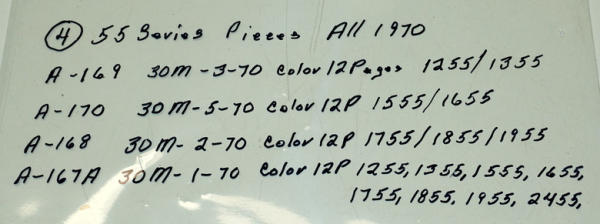 ④ 55 Series Pieces All 1970
A-169 30M-3-70 Color 12Pages 1255/1355
A-170 30M-5-70 Color 12P 1555/1655
A-168 30M-2-70 Color 12P 1755/1855/1955
A-167A 30M-1-70 Color 12P 1255, 1355, 1555, 1655,
1755, 1855. 1955, 2455,